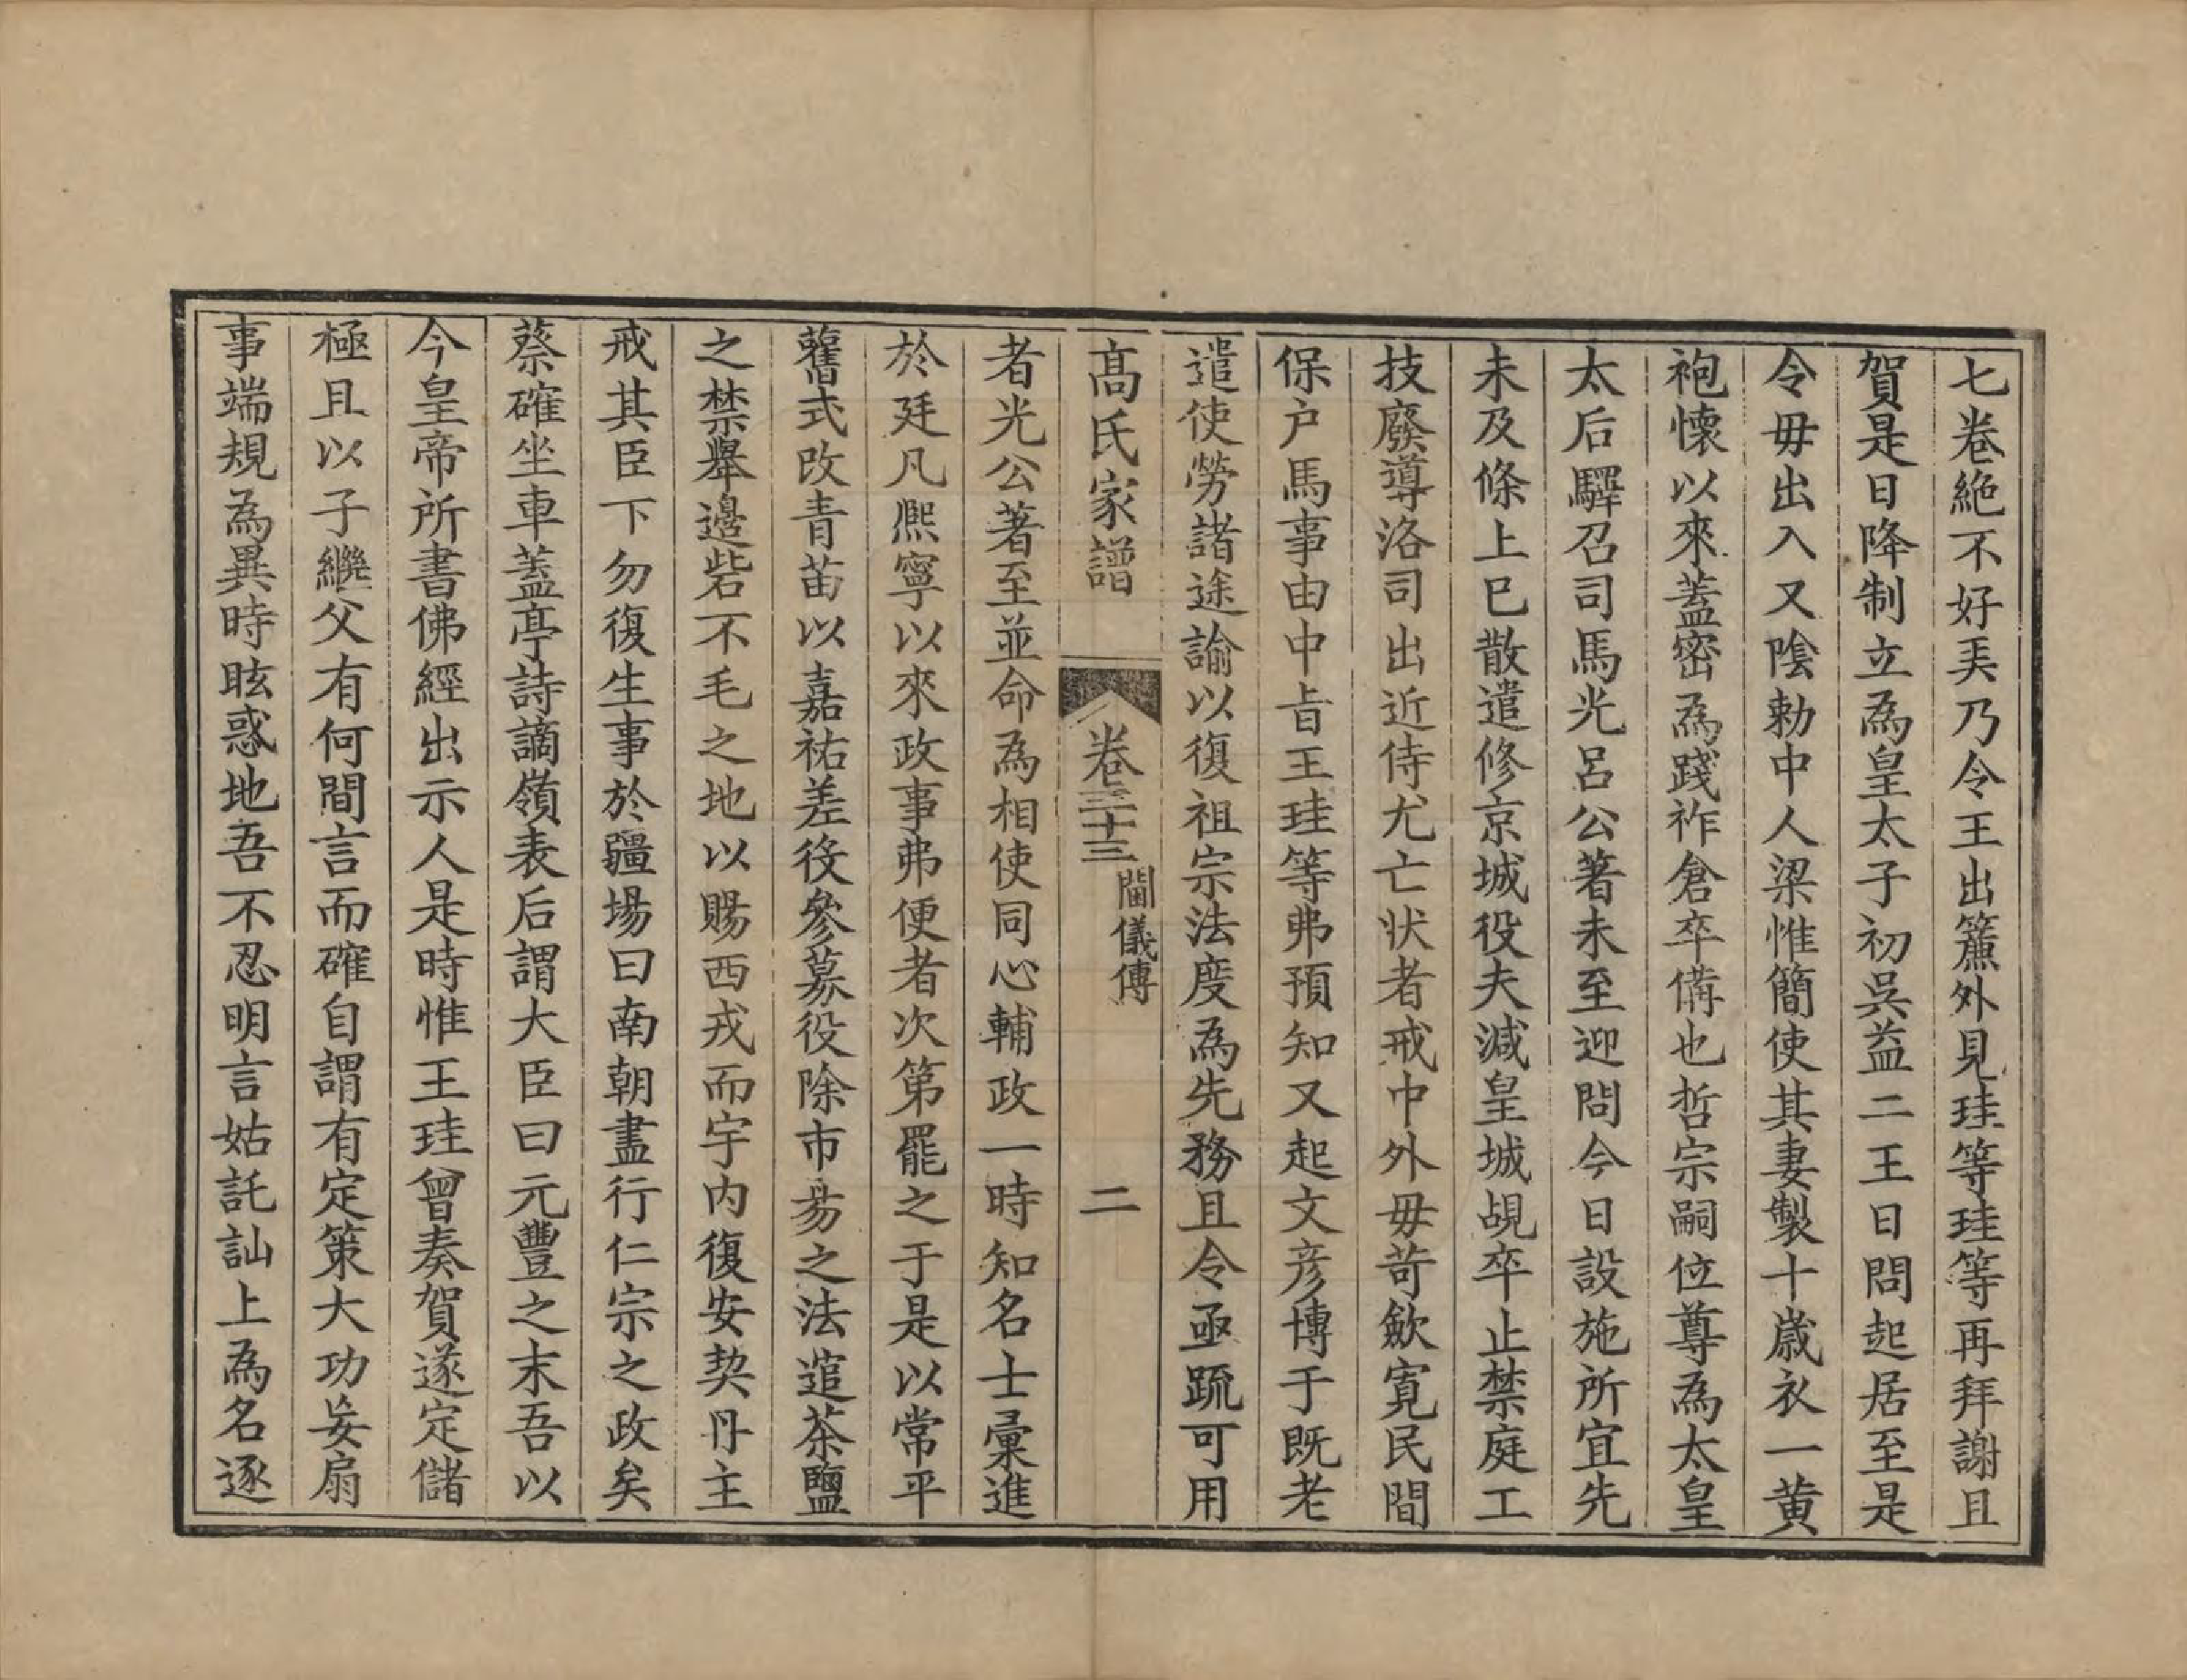 七卷絶不好美乃令王出簾外見珪等珪等再拜謝且
賀是日降制立為皇太子初吳益二王日問起居至是
令毋出入又陰勅中人梁惟簡使其妻製十歲衣一黄
袍懷以來蓋密為踐祚倉卒備也哲宗嗣位尊為太皇
太后驛召司馬光呂公著未至迎問今日設施所宜先
未及條上已散遣修京城役夫減皇城覘卒止禁庭工
技廢導洛司出近侍尤亡状者戒中外毋苛歛寛民間
保户馬事由中旨王珪等弗預知又起文彦博于既老
遣使勞諸途諭以復祖宗法度為先務且令亟疏可用
髙氏家譜 卷三十三 閫儀傳 二
者光公著至並命為相使同心輔政一時知名士彙進
於廷凡熙寧以來政事弗便者次第罷之于是以常平
舊式改青苗以嘉祐差役參募役除市易之法逭茶鹽
之禁舉邊砦不毛之地以賜西戎而宇内復安契丹主
戒其臣下勿復生事於疆場曰南朝盡行仁宗之政矣
蔡確坐車蓋亭詩謫嶺表后謂大臣曰元豐之末吾以
今皇帝所書佛經出示人是時惟王珪曾奏賀遂定儲
極且以子繼父有何間言而確自謂有定策大功妄扇
事端規為異時眩惑地吾不忍明言姑託訕上為名逐